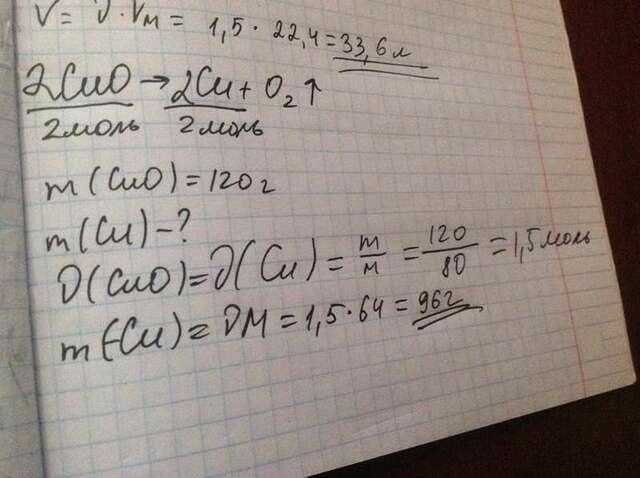 V = ν · Vм = 1,5 · 22,4 = 33,6 л
2CuO → 2Cu + O₂↑
2моль 2моль
m (CuO) = 120 г
m (Cu) - ?
ν(CuO) = ν(Cu) = m/м = 120/80 = 1,5 моль
m (Cu) = νM = 1,5 · 64 = 96г